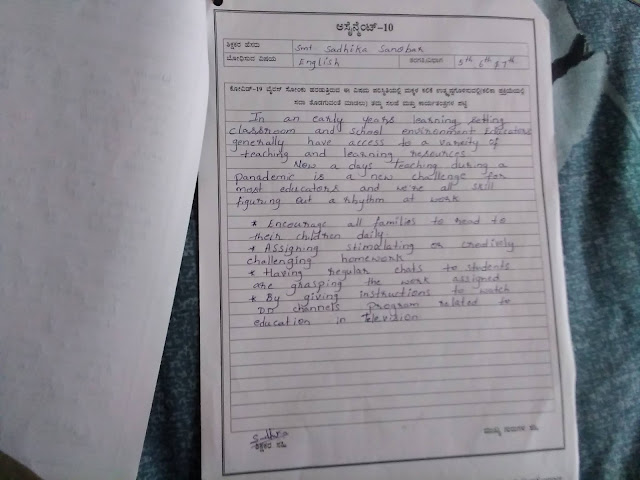 ಅಸೈನ್ಮೆಂಟ್-10
ಶಿಕ್ಷಕರ ಹೆಸರು Smt. Sadhika Sanobar
ಬೋಧಿಸುವ ವಿಷಯ English ತರಗತಿ/ವಿಭಾಗ 5th 6th & 7th
ಕೋವಿಡ್-19 ವೈರಸ್ ಸೋಂಕು ಹರಡುತ್ತಿರುವ ಈ ವಿಷಮ ಪರಿಸ್ಥಿತಿಯಲ್ಲಿ ಮಕ್ಕಳ ಕಲಿಕೆ
ಮಾಡಲು ತಮ್ಮ ಸಲಹೆ ಮತ್ತು ಕಾರ್ಯತಂತ್ರಗಳ ಪಟ್ಟಿ
In an early years learning setting
classroom and school environment Educators
generally have access to a variety of
teaching and learning resources.
Now a days teaching during a
panademic is a new challenge for
most educators and we're all skill
figuring out a rhythm at work
* Encourage all families to read to
their children daily.
* Assigning stimalating or creatively
challenging homework
* Having regular chats to students
are grasping the work assigned
* By giving instructions to watch
DD channels program related to
education in Television
ಶಿಕ್ಷಕರ ಸಹಿ
ಮುಖ್ಯ ಗುರುಗಳ ಸಹಿ